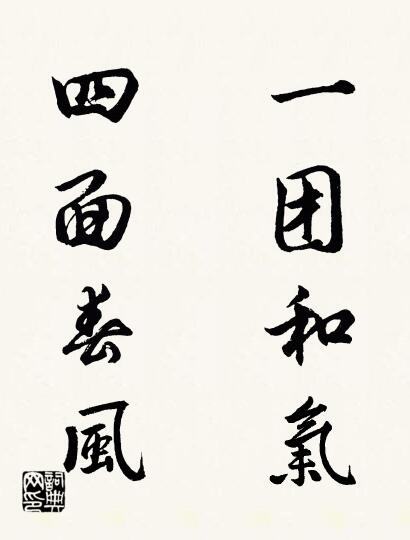 一团和氣
四面春風
詞典网印